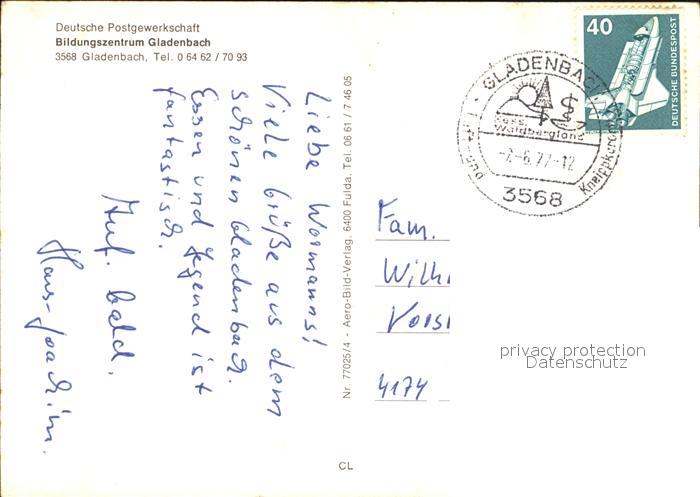 Deutsche Postgewerkschaft
Bildungszentrum Gladenbach
3568 Gladenbach, Tel. 0 64 62 / 70 93
Liebe Wormanns!
Viele Grüße aus dem
schönen Gladenbach.
Essen und Gegend ist
fantastisch.
Auf bald.
Hans-Joachim.
Nr. 77025/4 - Aero-Bild-Verlag, 6400 Fulda, Tel. 06 61 / 7 46 05
40
DEUTSCHE BUNDESPOST
GLADENBACH
Waldbergland
-2.-6.77-12
3568
Fam.
Wilh
Vors
4174
privacy protection
Datenschutz
CL